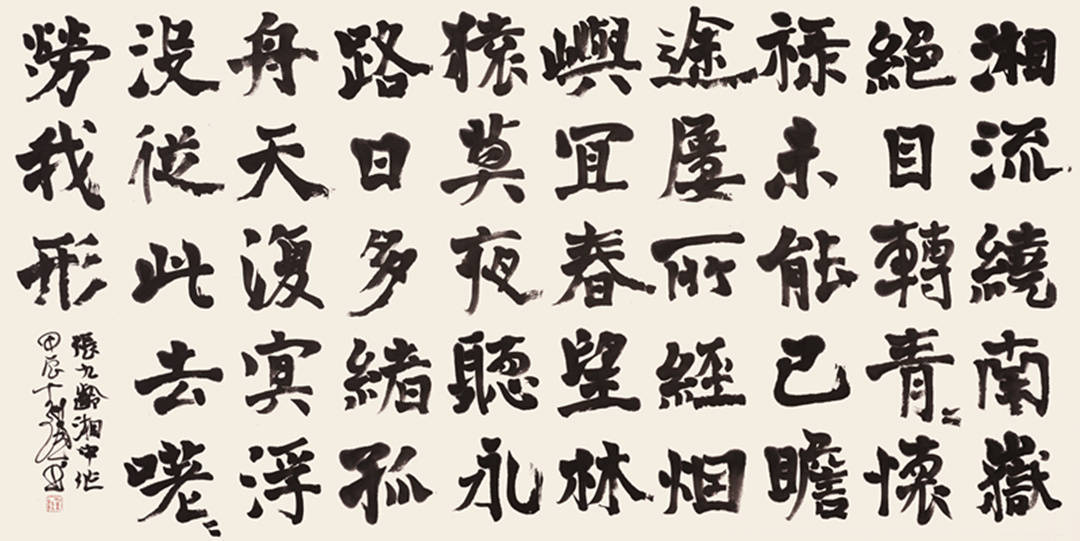 湘流繞南嶽
絕目轉青〻懷
祿未能已瞻
途屢所經烟
嶼宜春望林
猿莫夜聽永
路日多緒孤
舟天復冥浮
没從此去嗟〻
勞我形
張九齡湘中作
甲辰十